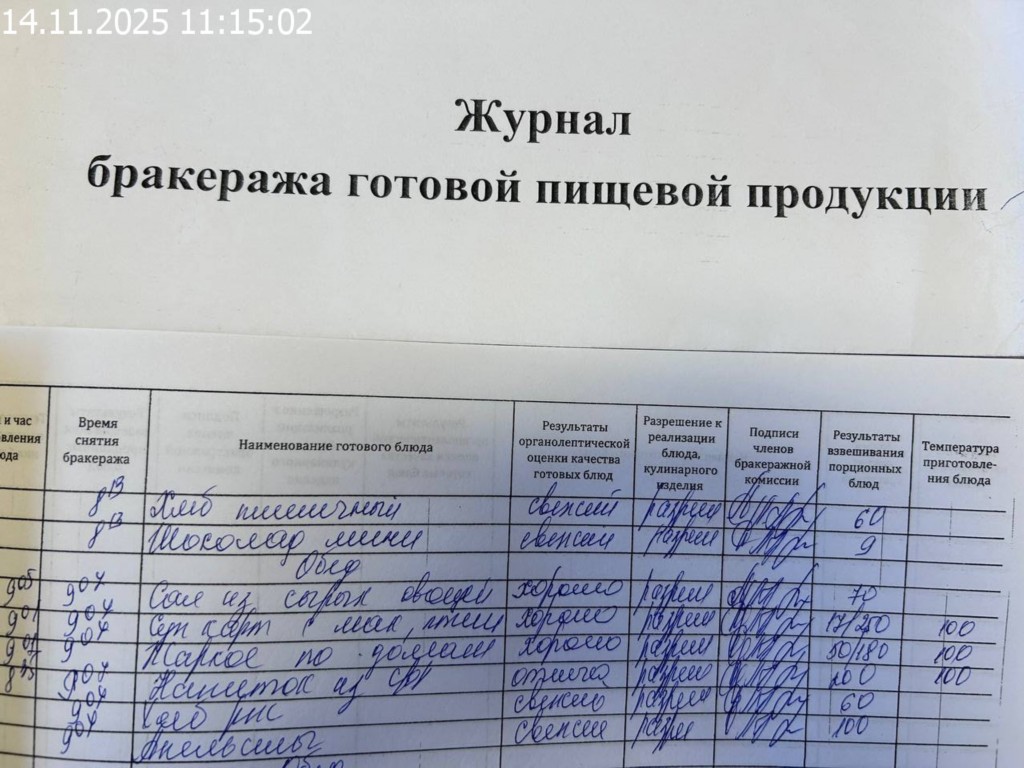 14.11.2025 11:15:02
Журнал
бракеража готовой пищевой продукции
и час
овления
юда
Время
снятия
бракеража
Наименование готового блюда
Результаты
органолептической
оценки качества
готовых блюд
Разрешение к
реализации
блюда,
кулинарного
изделия
Подписи
членов
бракеражной
комиссии
Результаты
взвешивания
порционных
блюд
Температура
приготовле-
ния блюда
8 13 Хлеб пшеничный свежий разреш 60
8 13 Шоколад мини свежий разреш 9
Обед
9 05 9 07 Сал из сырых овощей хорошо разреш 70
9 01 9 07 Суп карт с мак хорошо разреш 17/250 100
9 07 Жаркое по домаш хорошо разреш 50/180 100
8 55 9 07 Напиток из с/ф отлично разреш 200 100
9 07 Хлеб рж свежий разреш 60
9 07 Апельсины свежие разреш 100